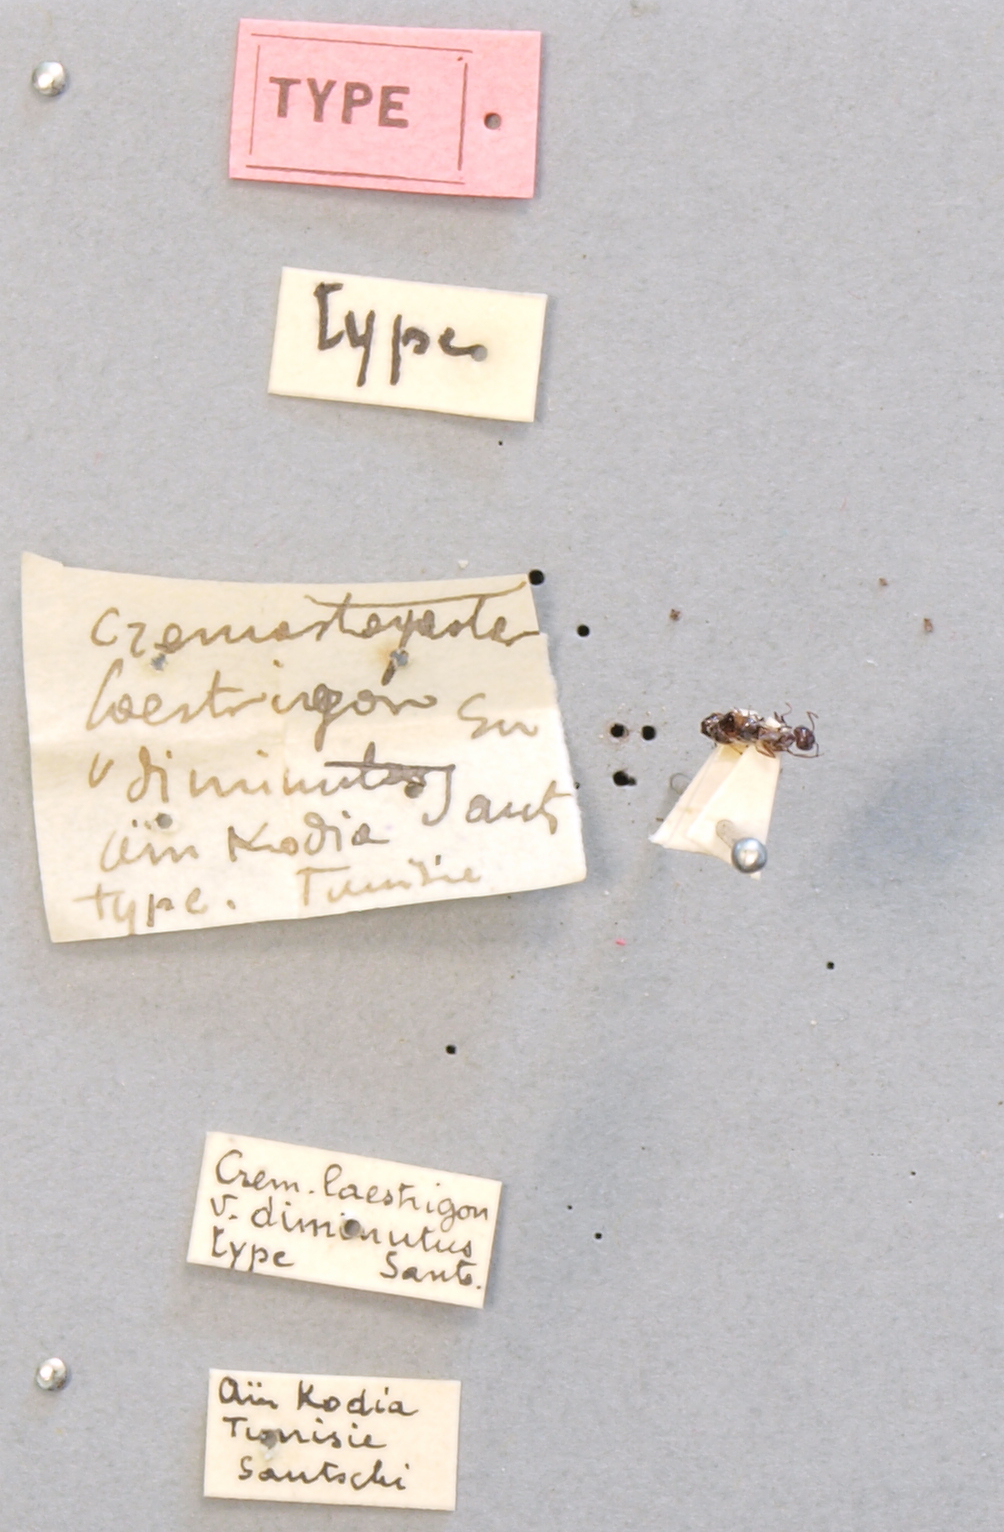 TYPE
Type
Cremastogaster
laestrigon Em
v diminutus Sant
Aïn Kodia
type. Tunisie
Crem. laestrigon
v. diminutus
Type Sants.
Aïn Kodia
Tunisie
Santschi